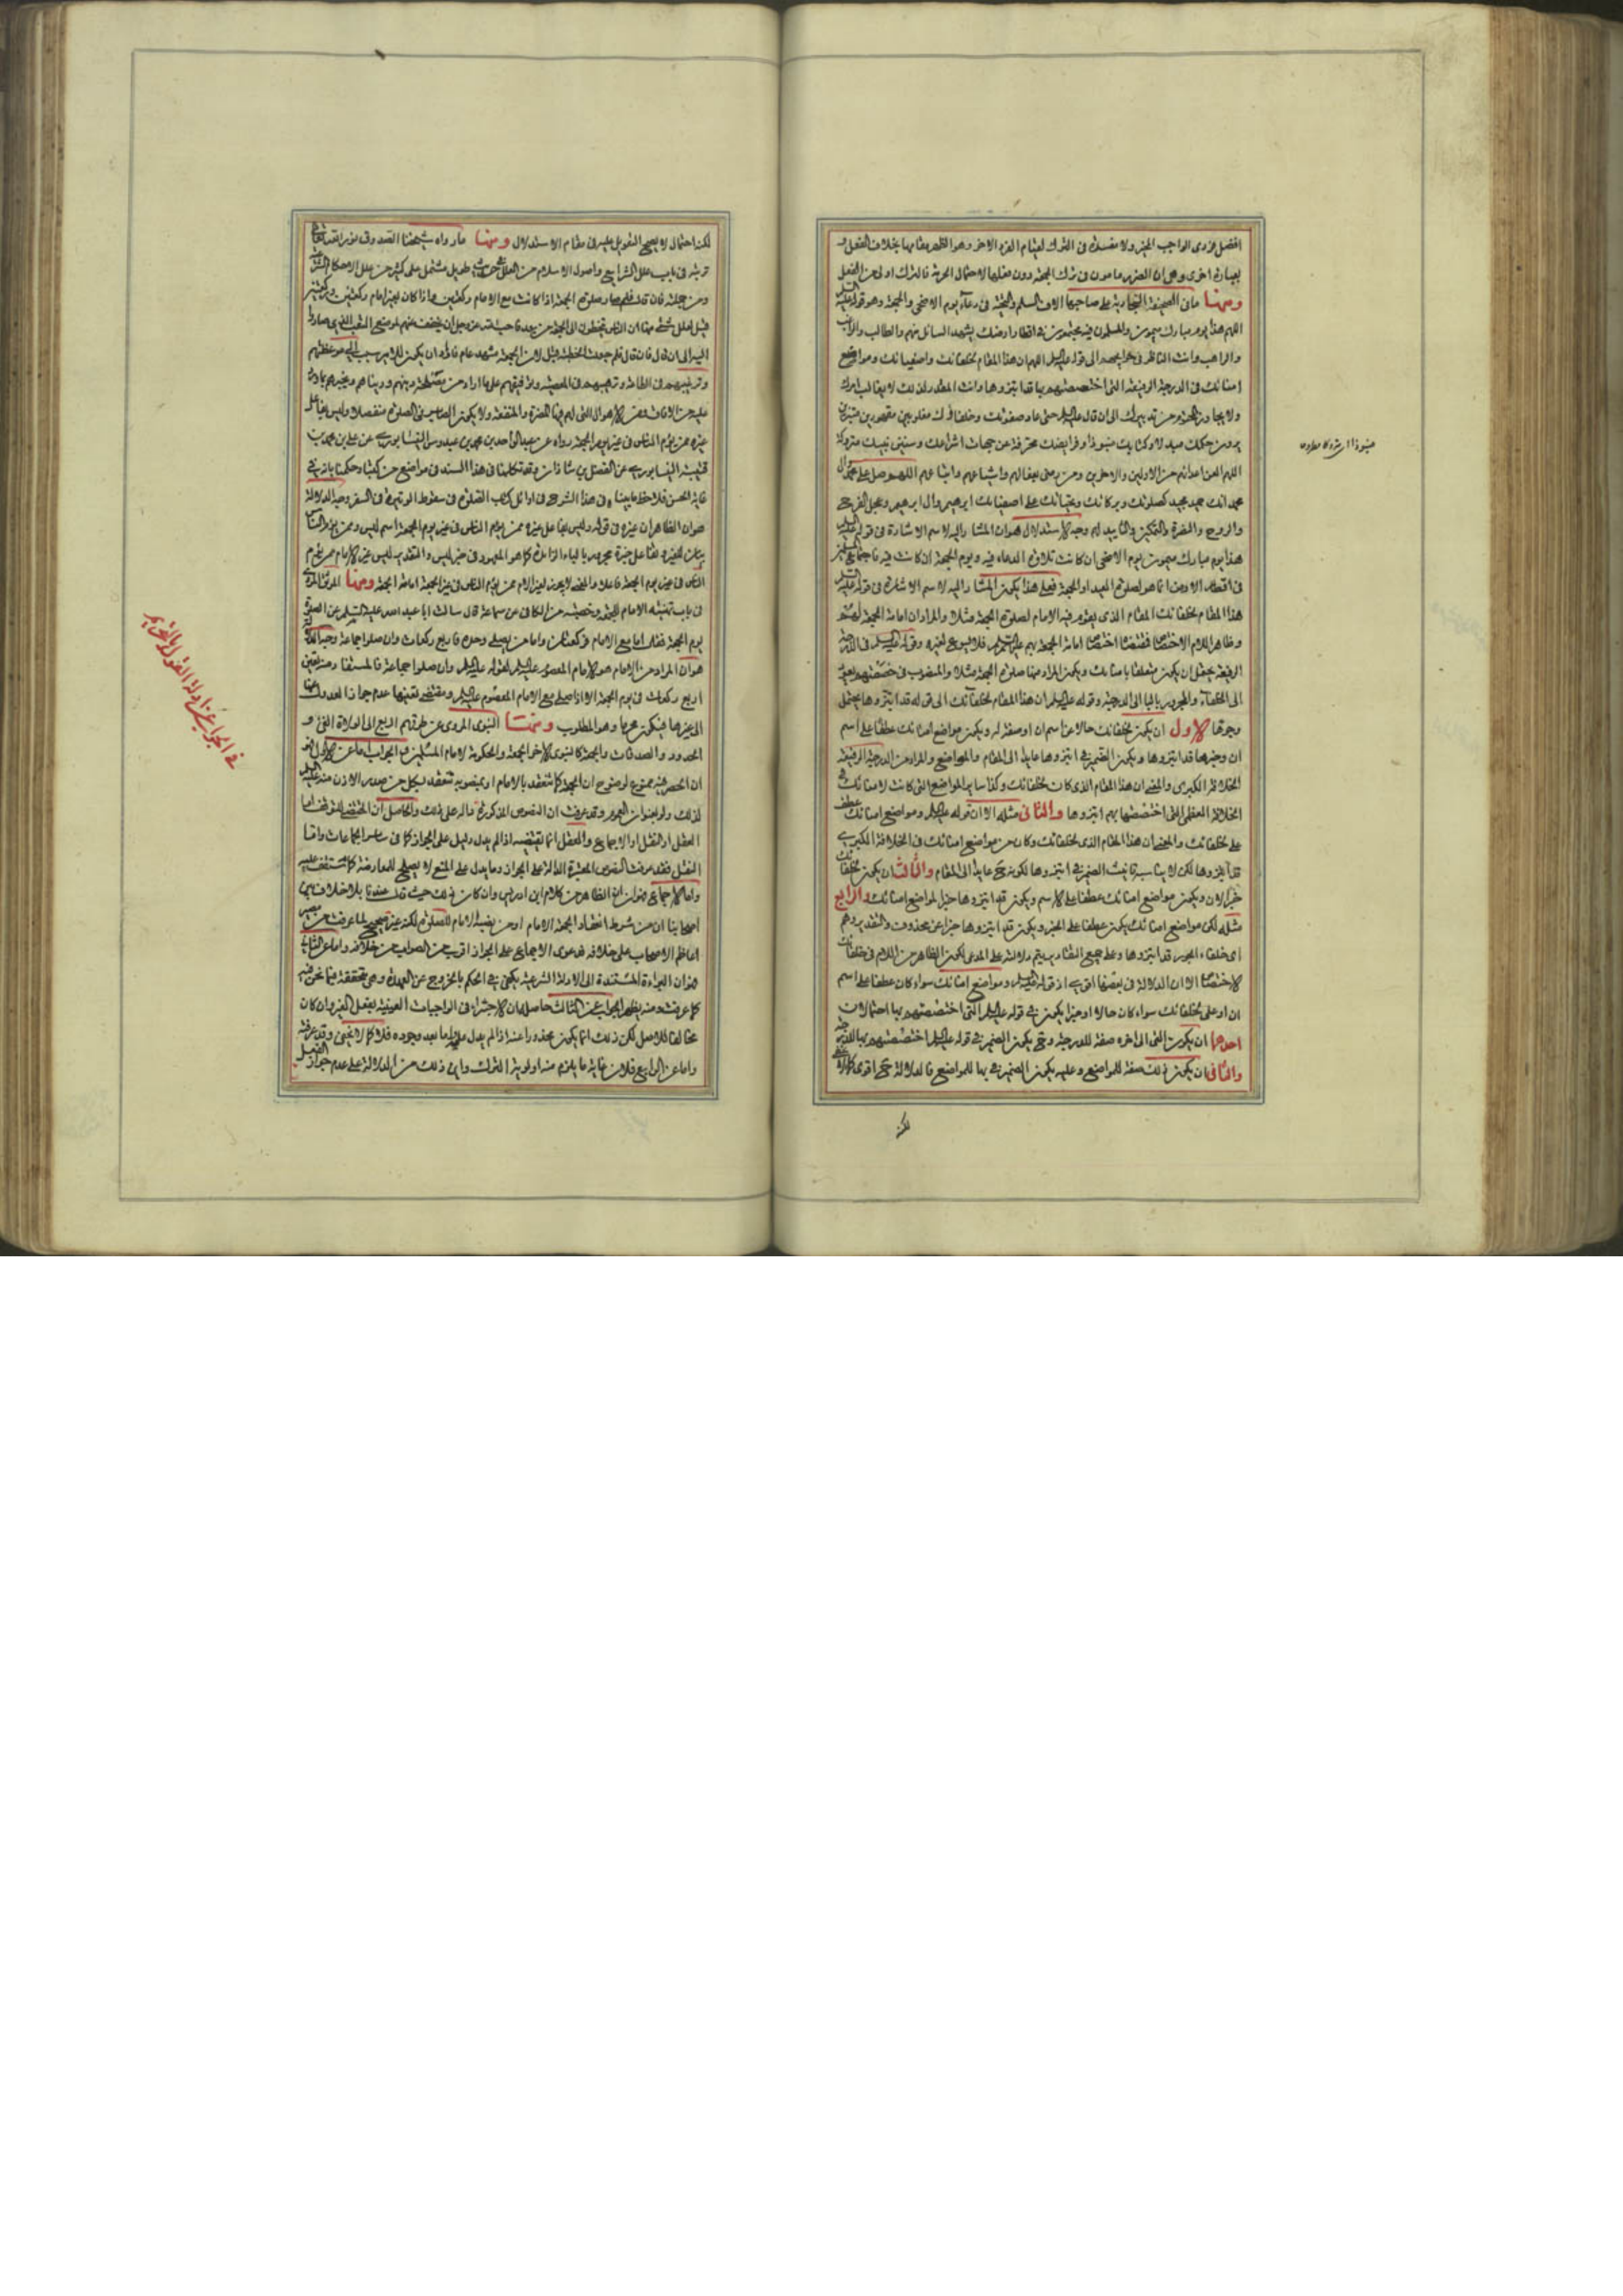 افضل فردى الواجب المخير ولا مفسدة فى الترك لقيام الفرد الاخر وهو الظهر مقامها بخلاف الفعل و
بعبارة اخرى وهى ان الضرر مامون فى ترك الجمعة دون فعلها لاحتمال الحرمة فالترك اولى من الفعل
ومنها ما فى الصحيفة السجادية على صاحبها الاف السلم والتحية فى دعاء يوم الاضحى والجمعة وهو قوله عليه السلم
اللهم هذا يوم مبارك ميمون والمسلمون فيه مجتمعون فى اقطار ارضك يشهد السائل منهم والطالب والراغب
والراهب وانت الناظر فى حوايجهم الى قوله عليه السلم اللهم ان هذا المقام لخلفائك واصفيائك ومواضع
امنائك فى الدرجة الرفيعة التى اختصصتهم بها قد ابتزوها وانت المقدر لذلك لا يغالب امرك
ولا يجاوز المحتوم من تدبيرك الى ان قال عليه السلم حتى عاد صفوتك وخلفاؤك مغلوبين مقهورين مبتزين
يرون حكمك مبدلا وكتابك منبوذا وفرايضك محرفة عن جهات اشراعك وسنن نبيك متروكة
اللهم العن اعدائهم من الاولين والاخرين ومن رضى بفعالهم واشياعهم واتباعهم اللهم صل على محمد وال
محمد انك حميد مجيد كصلوتك وبركاتك وتحياتك على اصفيائك ابرهيم وال ابرهيم وعجل الفرج
والروح والنصرة والتمكين والتاييد لهم وجه الاستدلال هو ان المشار اليه لاسم الاشارة فى قوله عليه السلم
هذا يوم مبارك ميمون يوم الاضحى ان كانت تلاوة الدعاء فيه ويوم الجمعة ان كانت فيه فاجتماع المسلمين
فى اقطار الارض انما هو لصلوة العيد او الجمعة فعلى هذا يكون المشار اليه لاسم الاشارة فى قوله عليه السلم
هذا المقام لخلفائك المقام الذى يقوم فيه الامام لصلوة الجمعة مثلا والمراد ان امامة الجمعة لهم
وظاهر اللام الاختصاص فمقتضاه اختصاص امامة الجمعة بهم عليهم السلم فلا يسوغ لغيرهم وقوله عليه السلم فى الدرجة
الرفيعة يحتمل ان يكون متعلقا بامنائك ويكون المراد منها صلوة الجمعة مثلا والمنصوب فى خصصتهم يعود
الى الخلفاء والمجرور بالباء الى الدرجة وقوله عليه السلم ان هذا المقام لخلفائك الى قوله قد ابتزوها يحتمل
وجوها الاول ان يكون لخلفائك حالا عن اسم ان او صفة له ويكون مواضع امنائك عطفا على اسم
ان وخبرها قد ابتزوها ويكون الضمير فى ابتزوها عايدا الى المقام والمواضع والمراد من الدرجة الرفيعة
الخلافة الكبرى والمعنى ان هذا المقام الذى كان لخلفائك وكذا ساير المواضع التى كانت لامنائك فى
الخلافة العظمى التى اختصصتها بهم ابتزوها والثانى مثله الا ان قوله عليه السلم ومواضع امنائك عطف
على لخلفائك والمعنى ان هذا المقام الذى لخلفائك وكان من مواضع امنائك فى الخلافة الكبرى
قد ابتزوها لكن لا يناسبه تانيث الضمير فى ابتزوها لكونه ح عايدا الى المقام والثالث ان يكون لخلفائك
خبرا لان ويكون مواضع امنائك عطفا على الاسم ويكون قد ابتزوها خبرا لمواضع امنائك والرابع
مثله لكن مواضع امنائك يكون عطفا على الخبر ويكون قد ابتزوها خبرا عن محذوف والتقدير وهم
اى خلفاء الجور قد ابتزوها وعلى جميع التقادير يتم دلالته على المدعى لكون الظاهر من اللام فى خلفائك
الاختصاص الا ان الدلالة فى بعضها اقوى اذ قوله عليه السلم ومواضع امنائك سواء كان عطفا على اسم
ان او على لخلفائك سواء كان حالا او خبرا يكون فى قوله عليه السلم التى اختصصتهم بها احتمالان
احدهما ان يكون التى الى اخره صفة للدرجة وح يكون الضمير فى قوله عليه السلم اختصصتهم بها للدرجة
والثانى ان يكون ذلك صفة للمواضع وعليه يكون الضمير فى بها للمواضع فالدلالة ح اقوى
لكنه
لكنه احتمال لا يصح التعويل عليه فى مقام الاستدلال ومنها ما رواه شيخنا الصدوق نور الله تعالى
تربته فى باب علل الشرايع واصول الاسلام من العلل فى حديث طويل مشتمل على كثير من علل الاحكام الشرعية
ومن جملته فان قال فلم صارت صلوة الجمعة اذا كانت مع الامام ركعتين واذا كان بغير امام ركعتين وركعتين
قيل لعلل شتى منها ان الناس يتخطون الى الجمعة من بعد فاحب الله عز وجل ان يخفف عنهم لموضع التعب الذى صاروا
اليه الى ان قال فان قال فلم جعلت الخطبة قيل لان الجمعة مشهد عام فاراد ان يكون للامير سبب الى موعظتهم
وترغيبهم فى الطاعة وترهيبهم من المعصية وتوقيفهم على ما اراد من مصلحة دينهم ودنياهم ويخبرهم بما ورد
عليه من الافاق ومن الاهوال التى لهم فيها المضرة والمنفعة ولا يكون الصابر فى الصلوة منفصلا وليس بفاعل
غيره ممن يؤم الناس فى غير يوم الجمعة رواه عن عبد الواحد بن محمد بن عبدوس النيسابورى عن على بن محمد بن
قتيبة النيسابورى عن الفضل بن شاذان وقد تكلمنا فى هذا السند فى مواضع من كتبنا وحكمنا بانه فى
غاية الحسن فلاحظ ما بيناه فى هذا الشرح فى اوائل كتاب الصلوة فى سقوط الوتيرة فى السفر وجه الدلالة
هو ان الظاهر ان غيره فى قوله وليس بفاعل غيره ممن يؤم الناس فى غير يوم الجمعة اسم ليس وممن يؤم الناس
بيان للغير وبفاعل خبره مجرور بالباء الزائدة كما هو المعهود فى خبر ليس والتقدير ليس غير الامام ممن يؤم
الناس فى غير يوم الجمعة فاعلا والمعنى لا يجوز لغير الامام ممن يؤم الناس فى غير الجمعة امامة الجمعة ومنها الموثق المروى
فى باب تهيئة الامام للجمعة وخطبته من الكافى عن سماعة قال سالت ابا عبد الله عليه السلم عن الصلوة
يوم الجمعة فقال اما مع الامام فركعتان واما من يصلى وحده فاربع ركعات وان صلوا جماعة وجه الدلالة
هو ان المراد من الامام هو الامام المعصوم عليه السلم لقوله عليه السلم وان صلوا جماعة فالمستفاد منه تعين
اربع ركعات فى يوم الجمعة الا اذا صلى مع الامام المعصوم عليه السلم ومقتضى تعينها عدم جواز العدول عنها
الى غيرها فيكون محرما وهو المطلوب ومنها النبوى المروى عن طرقهم اربع الى الولاة الفىء و
الحدود والصدقات والجمعة كالنبوى الاخر الجمعة والحكومة لامام المسلمين والجواب اما عن الاول فهو
ان الحصر فيه ممنوع لوضوح ان الجمعة كما تنعقد بالامام او بمنصوبه تنعقد بكل من صدر الاذن منه عليه السلم
لذلك ولو بعنوان العموم وقد عرفت ان النصوص المذكورة دالة على ذلك والحاصل ان المقتضى للتوقف اما
العقل او النقل او الاجماع والعقل انما يقتضيه اذا لم يدل دليل على الجواز كما فى ساير الجماعات واما
النقل فقد عرفت النصوص المعتبرة الدالة على الجواز وما يدل على المنع لا يصلح للمعارضة كما ستقف عليه
واما الاجماع فهو وان كان الظاهر من كلام ابن ادريس وان كان ذلك حيث قال عندنا بلا خلاف بين
اصحابنا ان من شرط انعقاد الجمعة الامام او من نصبه الامام للصلوة لكنه غير صحيح لما عرفت من مصير
اعاظم الاصحاب على خلافه فدعوى الاجماع على الجواز اقرب من الصواب من خلافه واما عن الثانى
فهو ان البراءة المستندة الى الادلة الشرعية يكفى فى الحكم بالخروج عن العهدة وهى متحققة فيما نحن فيه
كما عرفت ومنه يظهر الجواب عن الثالث حاصله ان الاجتزاء فى الواجبات العينية بفعل الغير وان كان
مخالفا للاصل لكن ذلك انما يكون محذورا عنه اذا لم يدل عليه واما بعد وجوده فلا كما لا يخفى وقد عرفته
واما عن الرابع فلان غاية ما يلزم منه اولوية الترك واين ذلك من الدلالة على عدم جواز الفعل
فى الجواب عن ادلة القول بالتحريم